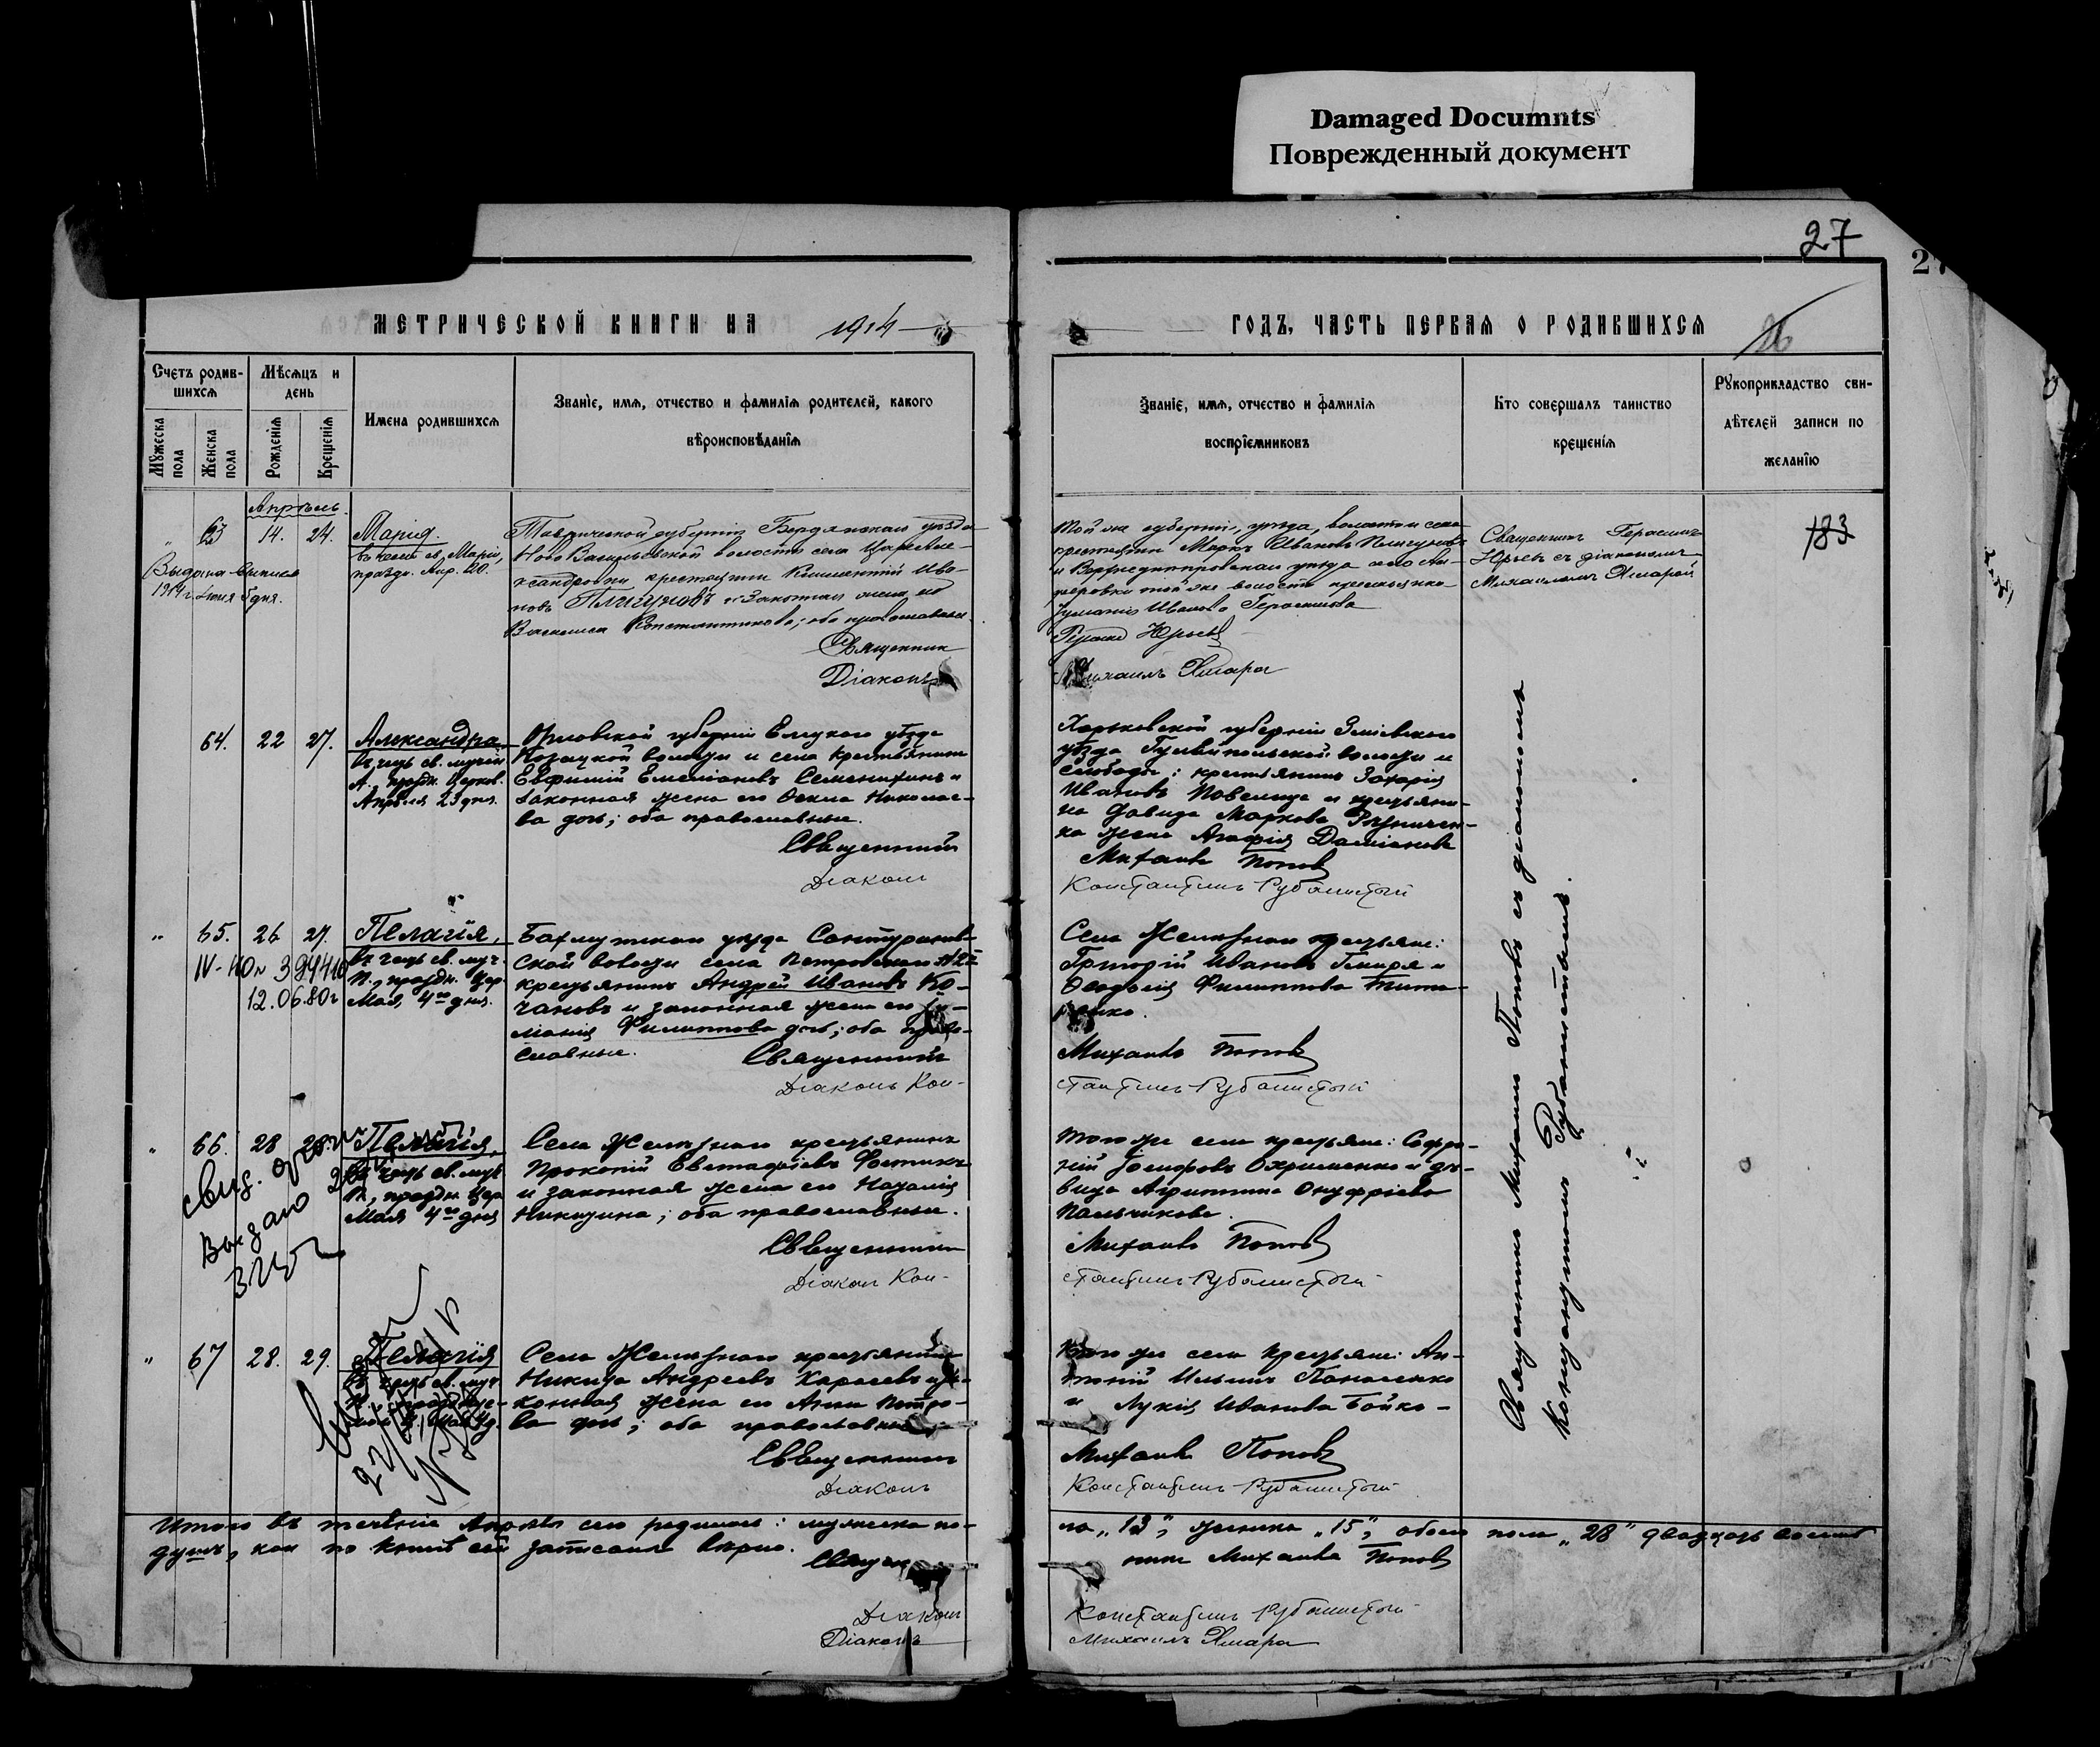 Damaged Documnts
Поврежденный документ
27
27
МЕТРИЧЕСКОЙ КНИГИ НА 1914
ГОДЪ, ЧАСТЬ ПЕРВАЯ О РОДИВШИХСЯ
26
Счетъ родив-
шихся
Мужеска пола
Женска пола
Мѣсяцъ и
день
Рожденія
Крещенія
Имена родившихся
Званіе, имя, отчество и фамилія родителей, какого
вѣроисповѣданія
Званіе, имя, отчество и фамилія
воспріемниковъ
Кто совершалъ таинство
крещенія
Рукоприкладство сви-
дѣтелей записи по
желанію
Апрѣль.
" 63 14. 24. Марія.
въ честь св. Маріи,
праздн. Апр. 20.
Выдана выписъ
1914 г. Іюня 5 дня.
Таврической губерніи Бердянскаго уѣзда
Ново Васильевской волости села
крестьянинъ Климентій Ива-
новъ Плигуновъ и законная жена его
Василиса Константинова; оба православные.
Священник
Діаконъ
Той же губерніи, уѣзда, волости и села
крестьянин Маркъ Ивановъ Плигуновъ
и уѣзда село Ан-
той же волости крестьянка
Іуліанія Иванова Герасимова
Юрьевъ
Михаилъ Ямара
Священник Герасимъ
Юрьевъ съ діакономъ
Михаиломъ Ямарой
183
64. 22 27. Александра
въ честь св. мучен.
А., праздн. Церков.
Апрѣля 23 дня.
Орловской губерніи Елецкаго уѣзда
Козацкой волости и села крестьянинъ
Евфимій Емеліановъ Семенихинъ и
законная жена его Ѳекла Николае-
ва дочь; оба православные.
Священникъ
Діаконъ
Харьковской губерніи Зміевского
уѣзда волости и
слободы: крестьянинъ Захарія
Ивановъ и крестьяни-
на Давида Маркова
ка жена Агафія Даміанова
Михаилъ Поповъ
Константинъ Рубанистый
" 65. 26 27. Пелагія,
въ честь св. муч.
П., праздн. Цер.
Мая, 4го дня.
IV-НО № 394410
12.06.80г
Бахмутскаго уѣзда Сантуринов-
ской волости села Петровскаго
крестьянинъ Андрей Ивановъ Ко-
чановъ и законная жена его
Филиппова дочь; оба право-
славные.
Священникъ
Діаконъ Кон-
Села Желѣзнаго крестьяне:
Григорій Ивановъ Гмиря и
Ѳеодосія Филиппова Тита-
ренко.
Михаилъ Поповъ
стантинъ Рубанистый
" 66. 28 28. Пелагія,
въ честь св. муч.
П., праздн. Цер
Мая 4го дня
свид.
Выдано
Села Желѣзнаго крестьянинъ
Прокопій Евстафіевъ Фостикъ
и законная жена его Наталія
Никитина; оба православные.
Священникъ
Діаконъ Кон-
Того же села крестьяне: Софро-
ній Іосифовъ Охрименко и дѣ-
вица Агриппина Онуфріева
Пальчикова.
Михаилъ Поповъ
стантинъ Рубанистый
" 67 28. 29. Пелагія
Села Желѣзнаго крестьянинъ
Никита Андреевъ Карасевъ и за-
конная жена его Анна Петро-
ва дочь; оба православные.
Священникъ
Діаконъ
Того же села крестьяне: Ан-
тоній Ильинъ Панасенко
и Лукія Иванова Бойко-
Михаилъ Поповъ
Константинъ Рубанистый
Священникъ Михаилъ Поповъ съ діакономъ
Константиномъ Рубанистымъ.
Итого въ теченіе Апрѣля сего родилось: мужеска по-
ла „13", женска „15", обоего пола „28" двадцать восемь
душъ, кои по книгѣ сей записаны вѣрно.
Священ
никъ Михаилъ Поповъ
Діаконъ
Константинъ Рубанистый
Діаконъ
Михаилъ Ямара